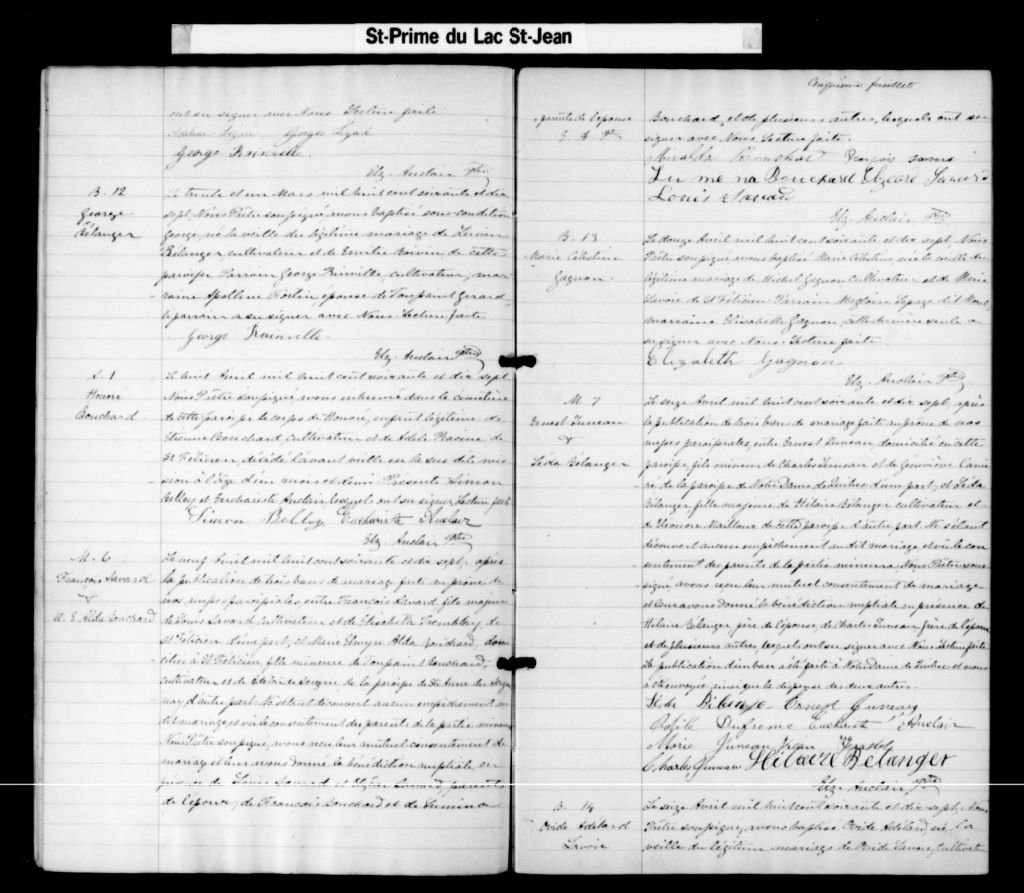 St-Prime du Lac St-Jean
ont su signer avec Nous. Lecture faite
Adeline Légaré Georges Légaré
George Rainville.
Elz. Auclair Ptre
B. 12
George
Bélanger
Le trente et un Mars mil huit cent soixante et dix
sept, Nous Prêtre soussigné avons baptisé sous condition
George, né la veille du légitime mariage de
Bélanger cultivateur et de Emilie Boivin de cette
paroisse. Parrain George Rinville, cultivateur, mar
raine Apolline Fortin épouse de Toussaint Girard,
le parrain a su signer avec Nous. Lecture faite
George Rainville.
Elz. Auclair Ptre
S. 1
Honoré
Bouchard
Le huit Avril mil huit cent soixante et dix sept
Nous Prêtre soussigné, avons inhumé dans le cimetière
de cette paroisse le corps de Honoré, enfant légitime de
Etienne Bouchard cultivateur et de Adèle Racine de
St Félicien, décédé l'avant veille en la sus dite mis
sion à l'âge d'un mois et demi. Présents Simon
Belley et Euchariste Auclair, lesquels ont su signer Lecture faite
Simon Belley Euchariste Auclair
Elz. Auclair Ptre
M. 6
François Savard
&
M. E. Alda Bouchard
Le neuf Avril mil huit cent soixante et dix sept, après
la publication de trois bans de mariage faite au prône de
nos messes paroissiales, entre François Savard fils majeur
de Louis Savard cultivateur et de Elisabeth Tremblay de
St Félicien d'une part, et Marie Elmyre Alda Bouchard, domi
ciliée à St Félicien, fille mineure de Toussaint Bouchard,
cultivateur et de Adelaïde de la paroisse de Ste Anne du Sague
nay d'autre part. Ne s'étant découvert aucun empêchement au
dit mariage et vu le consentement des parents de la partie mineure
Nous Prêtre soussigné, avons reçu leur mutuel consentement de
mariage et leur avons donné la bénédiction nuptiale en
présence de Louis Savard et Elzéar Savard, parents
de l'époux, de François Bouchard et de Lumina
Cinquième feuillet
parents de l'épouse
E. A. Ptre
Bouchard, et de plusieurs autres, lesquels ont su
signer avec Nous. Lecture faite.
Miralda Bouchard François Savard
Lu me na Bouchard Elzeard Savard
Louis Savard
Elz. Auclair Ptre
B. 13
Marie Célestine
Gagnon
Le douze Avril mil huit cent soixante et dix sept, Nous
Prêtre soussigné avons baptisé Marie Célestine, née la veille du
légitime mariage de Michel Gagnon Cultivateur et de Marie
Savoie de St Félicien. Parrain Magloire Lepage dit
marraine Elisabeth Gagnon, cette dernière seule a
su signer avec Nous. Lecture faite.
Elizabeth Gagnon
Elz. Auclair Ptre
M. 7
Ernest Juneau
&
Léda Bélanger
Le seize Avril mil huit cent soixante et dix sept, après
la publication de trois bans de mariage faite au prône de nos
messes paroissiales, entre Ernest Juneau, domicilié en cette
paroisse, fils mineur de Charles Juneau et de Geneviève Carri
ré de la paroisse de Notre Dame de Québec d'une part, et Léda
Bélanger, fille majeure de Hilaire Bélanger cultivateur et
de Eléonore Mailloux de cette paroisse d'autre part. Ne s'étant
découvert aucun empêchement au dit mariage et vu le con
sentement des parents de la partie mineure, Nous Prêtre sous
signé, avons reçu leur mutuel consentement de mariage
et leur avons donné la bénédiction nuptiale en présence de
Hilaire Bélanger, père de l'épouse, de Charles Juneau frère de l'époux
et de plusieurs autres, lesquels ont su signer avec Nous. Lecture faite.
La publication d'un ban a été faite à Notre Dame de Québec et nous
a été envoyée ainsi que la dispense des deux autres.
Léda Bélanger Ernest Juneau
Dufresne Eucharist Auclair
Marie Juneau
Charles Juneau Hilaire Bélanger
Elz. Auclair Ptre
B. 14
Ovide Adélard
Lavoie
Le seize Avril mil huit cent soixante et dix sept, Nous
Prêtre soussigné, avons baptisé Ovide Adélard, né la
veille du légitime mariage de Ovide Lavoie, Cultivateur